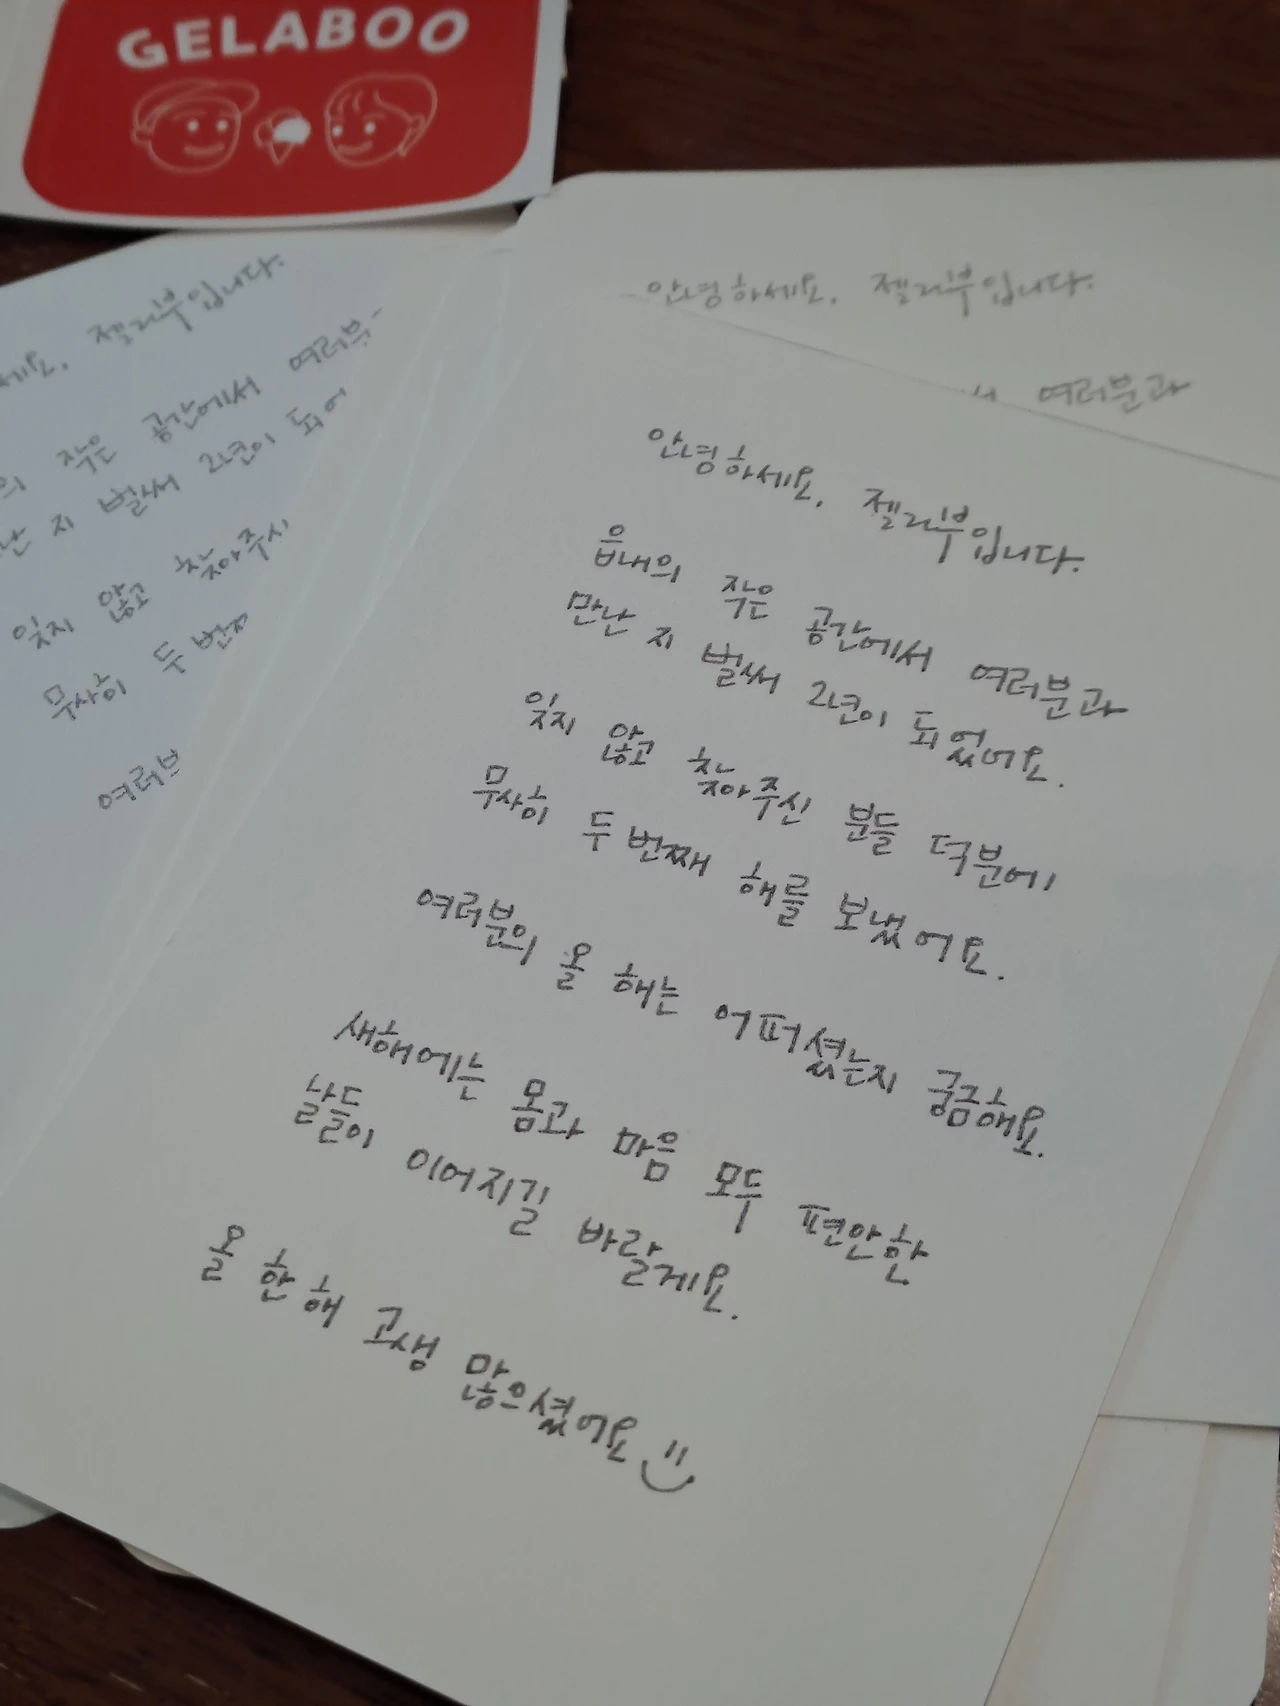 GELABOO
세요. 젤라부입니다.
의 작은 공간에서 여러분
난 지 벌써 2년이 되어
잊지 않고 찾아주시
무사히 두 번째
여러분
안녕하세요. 젤라부입니다.
서 여러분과
안녕하세요. 젤라부입니다.
읍내의 작은 공간에서 여러분과
만난 지 벌써 2년이 되었어요.
잊지 않고 찾아주신 분들 덕분에
무사히 두 번째 해를 보냈어요.
여러분의 올 해는 어떠셨는지 궁금해요.
새해에는 몸과 마음 모두 편안한
날들이 이어지길 바랄게요.
올 한 해 고생 많으셨어요